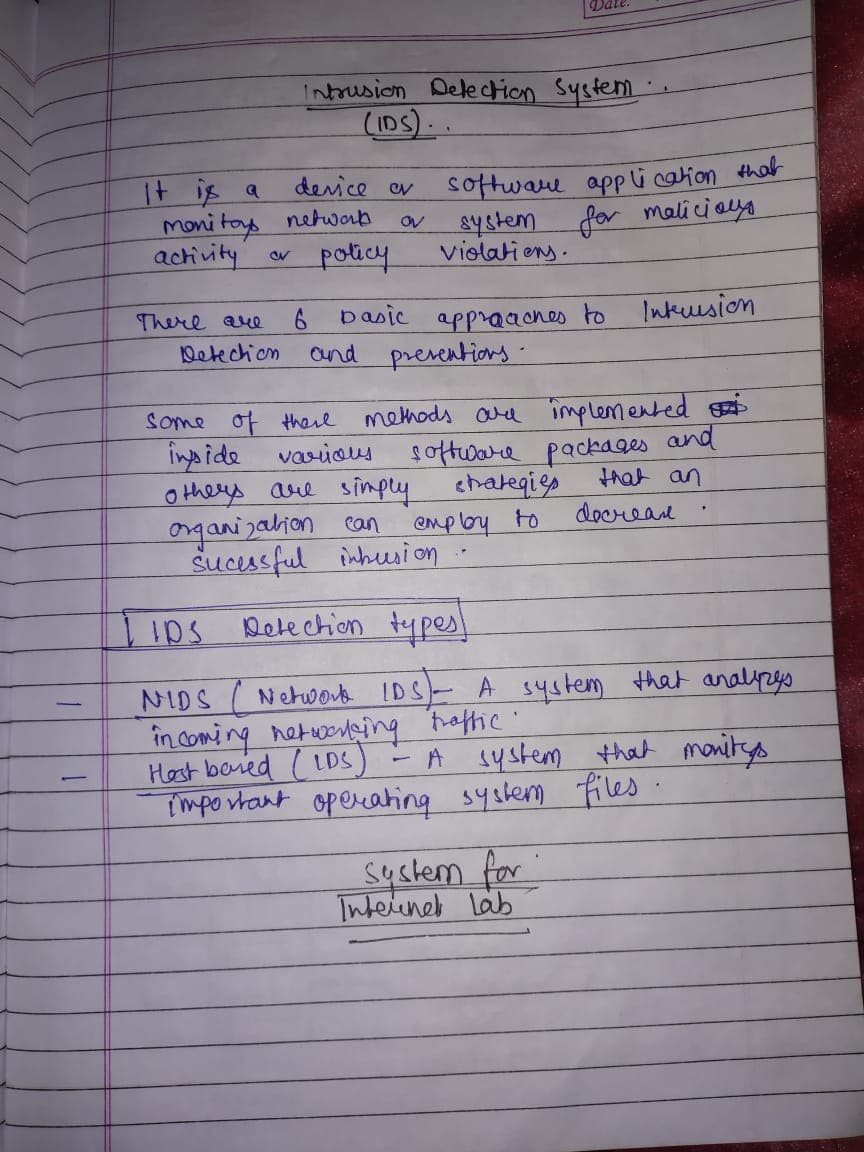 Date.
Intrusion Detection System..
(IDS)..
It is a device or software application that
monitors network or system for malicious
activity or policy violations.
There are 6 basic appraaches to Intrusion
Detection and preventions.
Some of these methods are implemented
inside various software packages and
others are simply strategies that an
organization can employ to decrease
sucessful intrusion.
IDS Detection types
- NIDS (Network IDS) - A system that analyzes
incoming networking traffic.
- Host based (IDS) - A system that monitors
important operating system files.
System for
Internet Lab